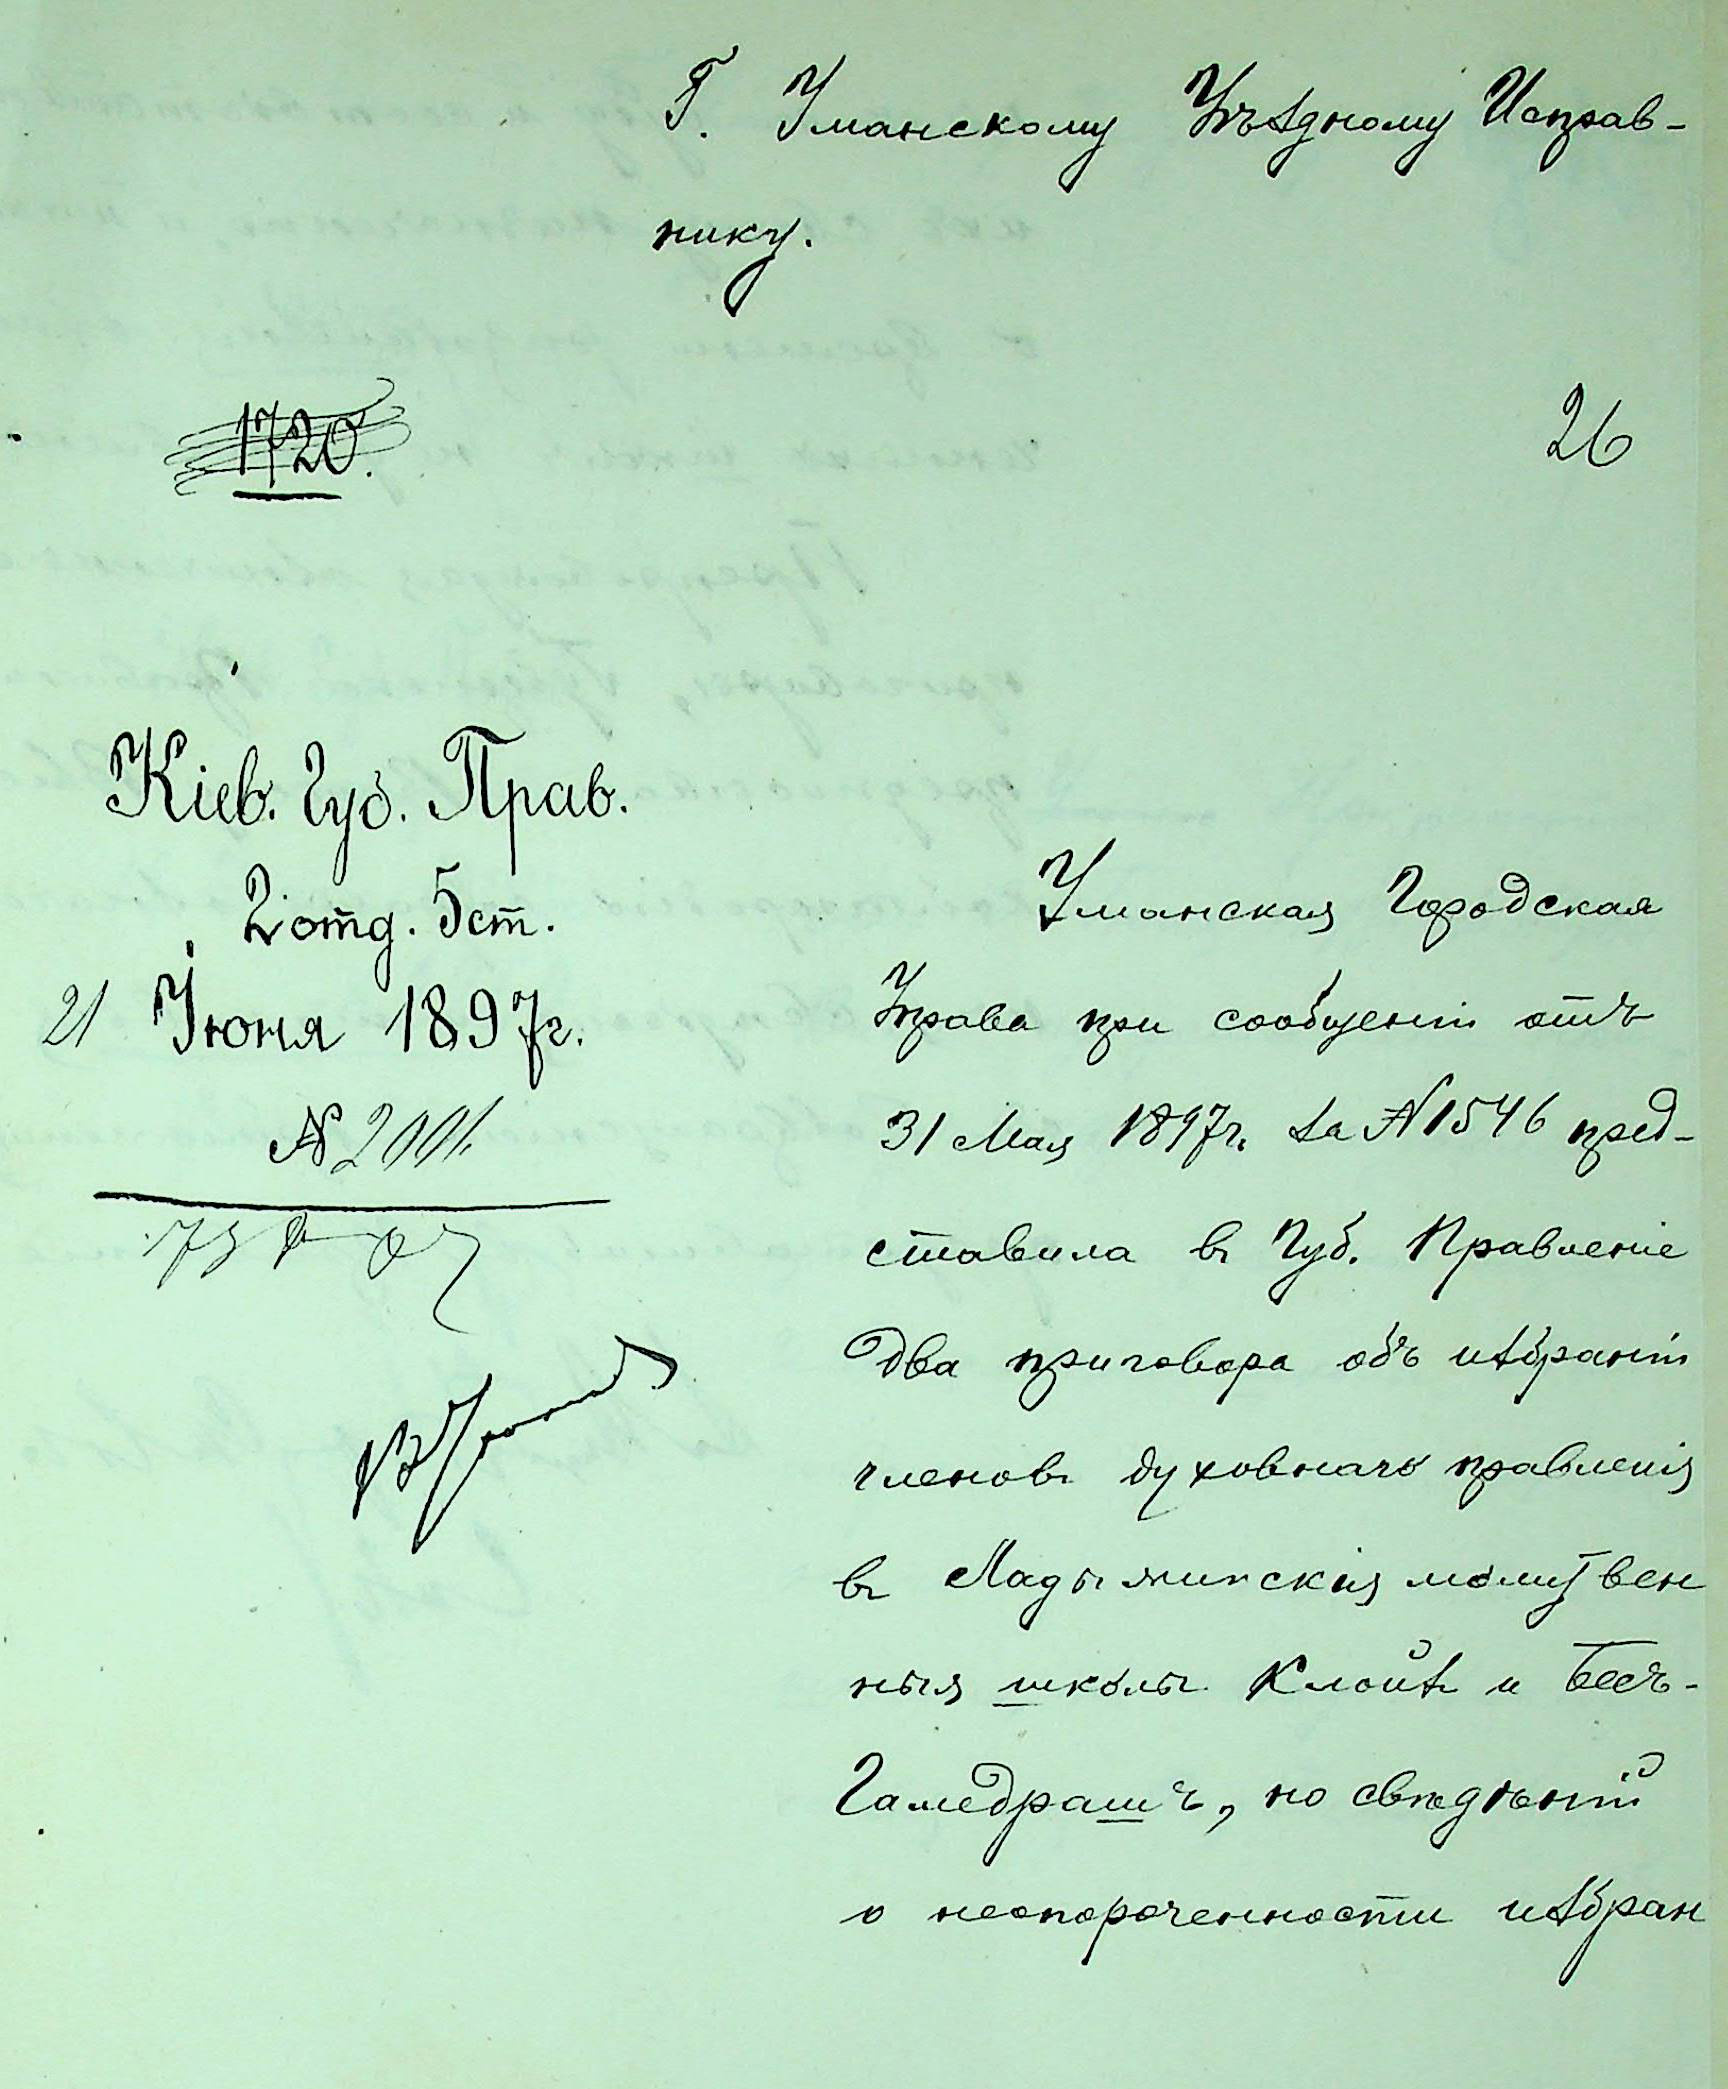 Г. Уманскому Уѣздному Исправ-
нику.
1720.
26
Кіев. Губ. Прав.
2 отд. 5 ст.
21 Іюня 1897 г.
№ 2001.
Уманская Городская
Управа при сообщеніи отъ
31 Мая 1897 г. за № 1546 пред-
ставила въ Губ. Правленіе
два приговора объ избраніи
членовъ духовнаго правленія
въ Ладыжинскія молитвен
ныя школы Клойзъ и Бесъ-
Гамедрашъ, но свѣдѣній
о неопороченности избран